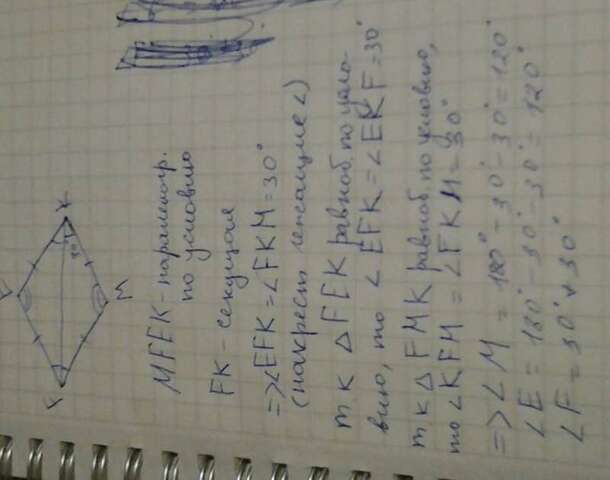 E
K
30°
F
M
MFEK - параллелогр.
по условию
FK - секущая
=> ∠EFK = ∠FKM = 30°
(накрест лежащие ∠)
т к △ FEK равноб. по усло-
вию, то ∠ EFK = ∠EKF = 30°
т к △ FMK равноб. по условию,
то ∠KFM = ∠FKM = 30°
=> ∠ M = 180° - 30° - 30° = 120°
∠E = 180° - 30° - 30° = 120°
∠F = 30° + 30°